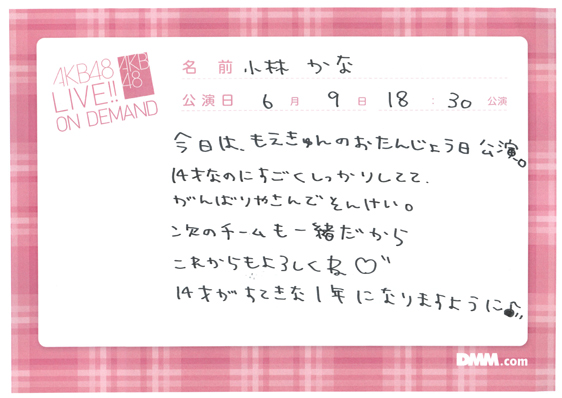 AKB48
LIVE!!
ON DEMAND
AKB
48
名前 小林 かな
公演日 6月 9日 18:30 公演
今日は、もえきゅんのおたんじょう日公演。
14才なのにすごくしっかりしてて、
がんばりやさんでそんけい。
次のチームも一緒だから
これからもよろしくね♡
14才がすてきな1年になりますように♪
DMM.com